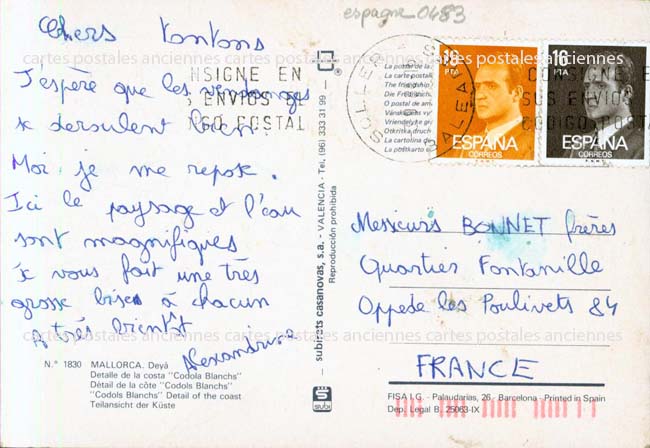 espagne_0483
Chers tontons
J'espère que les vendanges
se deroulent bien.
Moi je me repose.
Ici le paysage et l'eau
sont magnifiques
je vous fait une très
grosse bises à chacun
A très bientôt
Alexandrine
N.º 1830 MALLORCA. Deyá
Detalle de la costa "Codola Blanchs"
Détail de la côte "Codols Blanchs"
"Codols Blanchs" Detail of the coast
Teilansicht der Küste
subirets casanovas, s.a. - VALENCIA - Tel. (96) 333 31 99
Reproducción prohibida
subi
La postal de la
La carte postale
The friendship
Die Freundsch
O postal de am
Vänskapen vy
Vriendelyte gr
Otkritka druch
La cartolina de
La postkarto
SOLLER
BALEARES
NSIGNE EN
S ENVIOS EL
IGO POSTAL
CONSIGNE EN
SUS ENVIOS
CODIGO POSTA
19 PTA
ESPAÑA
CORREOS
16 PTA
ESPAÑA
CORREOS
Messieurs BONNET frères
Quartier Fontanille
Oppede les Poulivets 84
FRANCE
FISA I.G. - Palaudarias, 26 - Barcelona - Printed in Spain
Dep. Legal B. 25063-IX
cartes postales anciennes cartes postales anciennes cartes postales anciennes
cartes postales anciennes cartes postales anciennes cartes postales anciennes